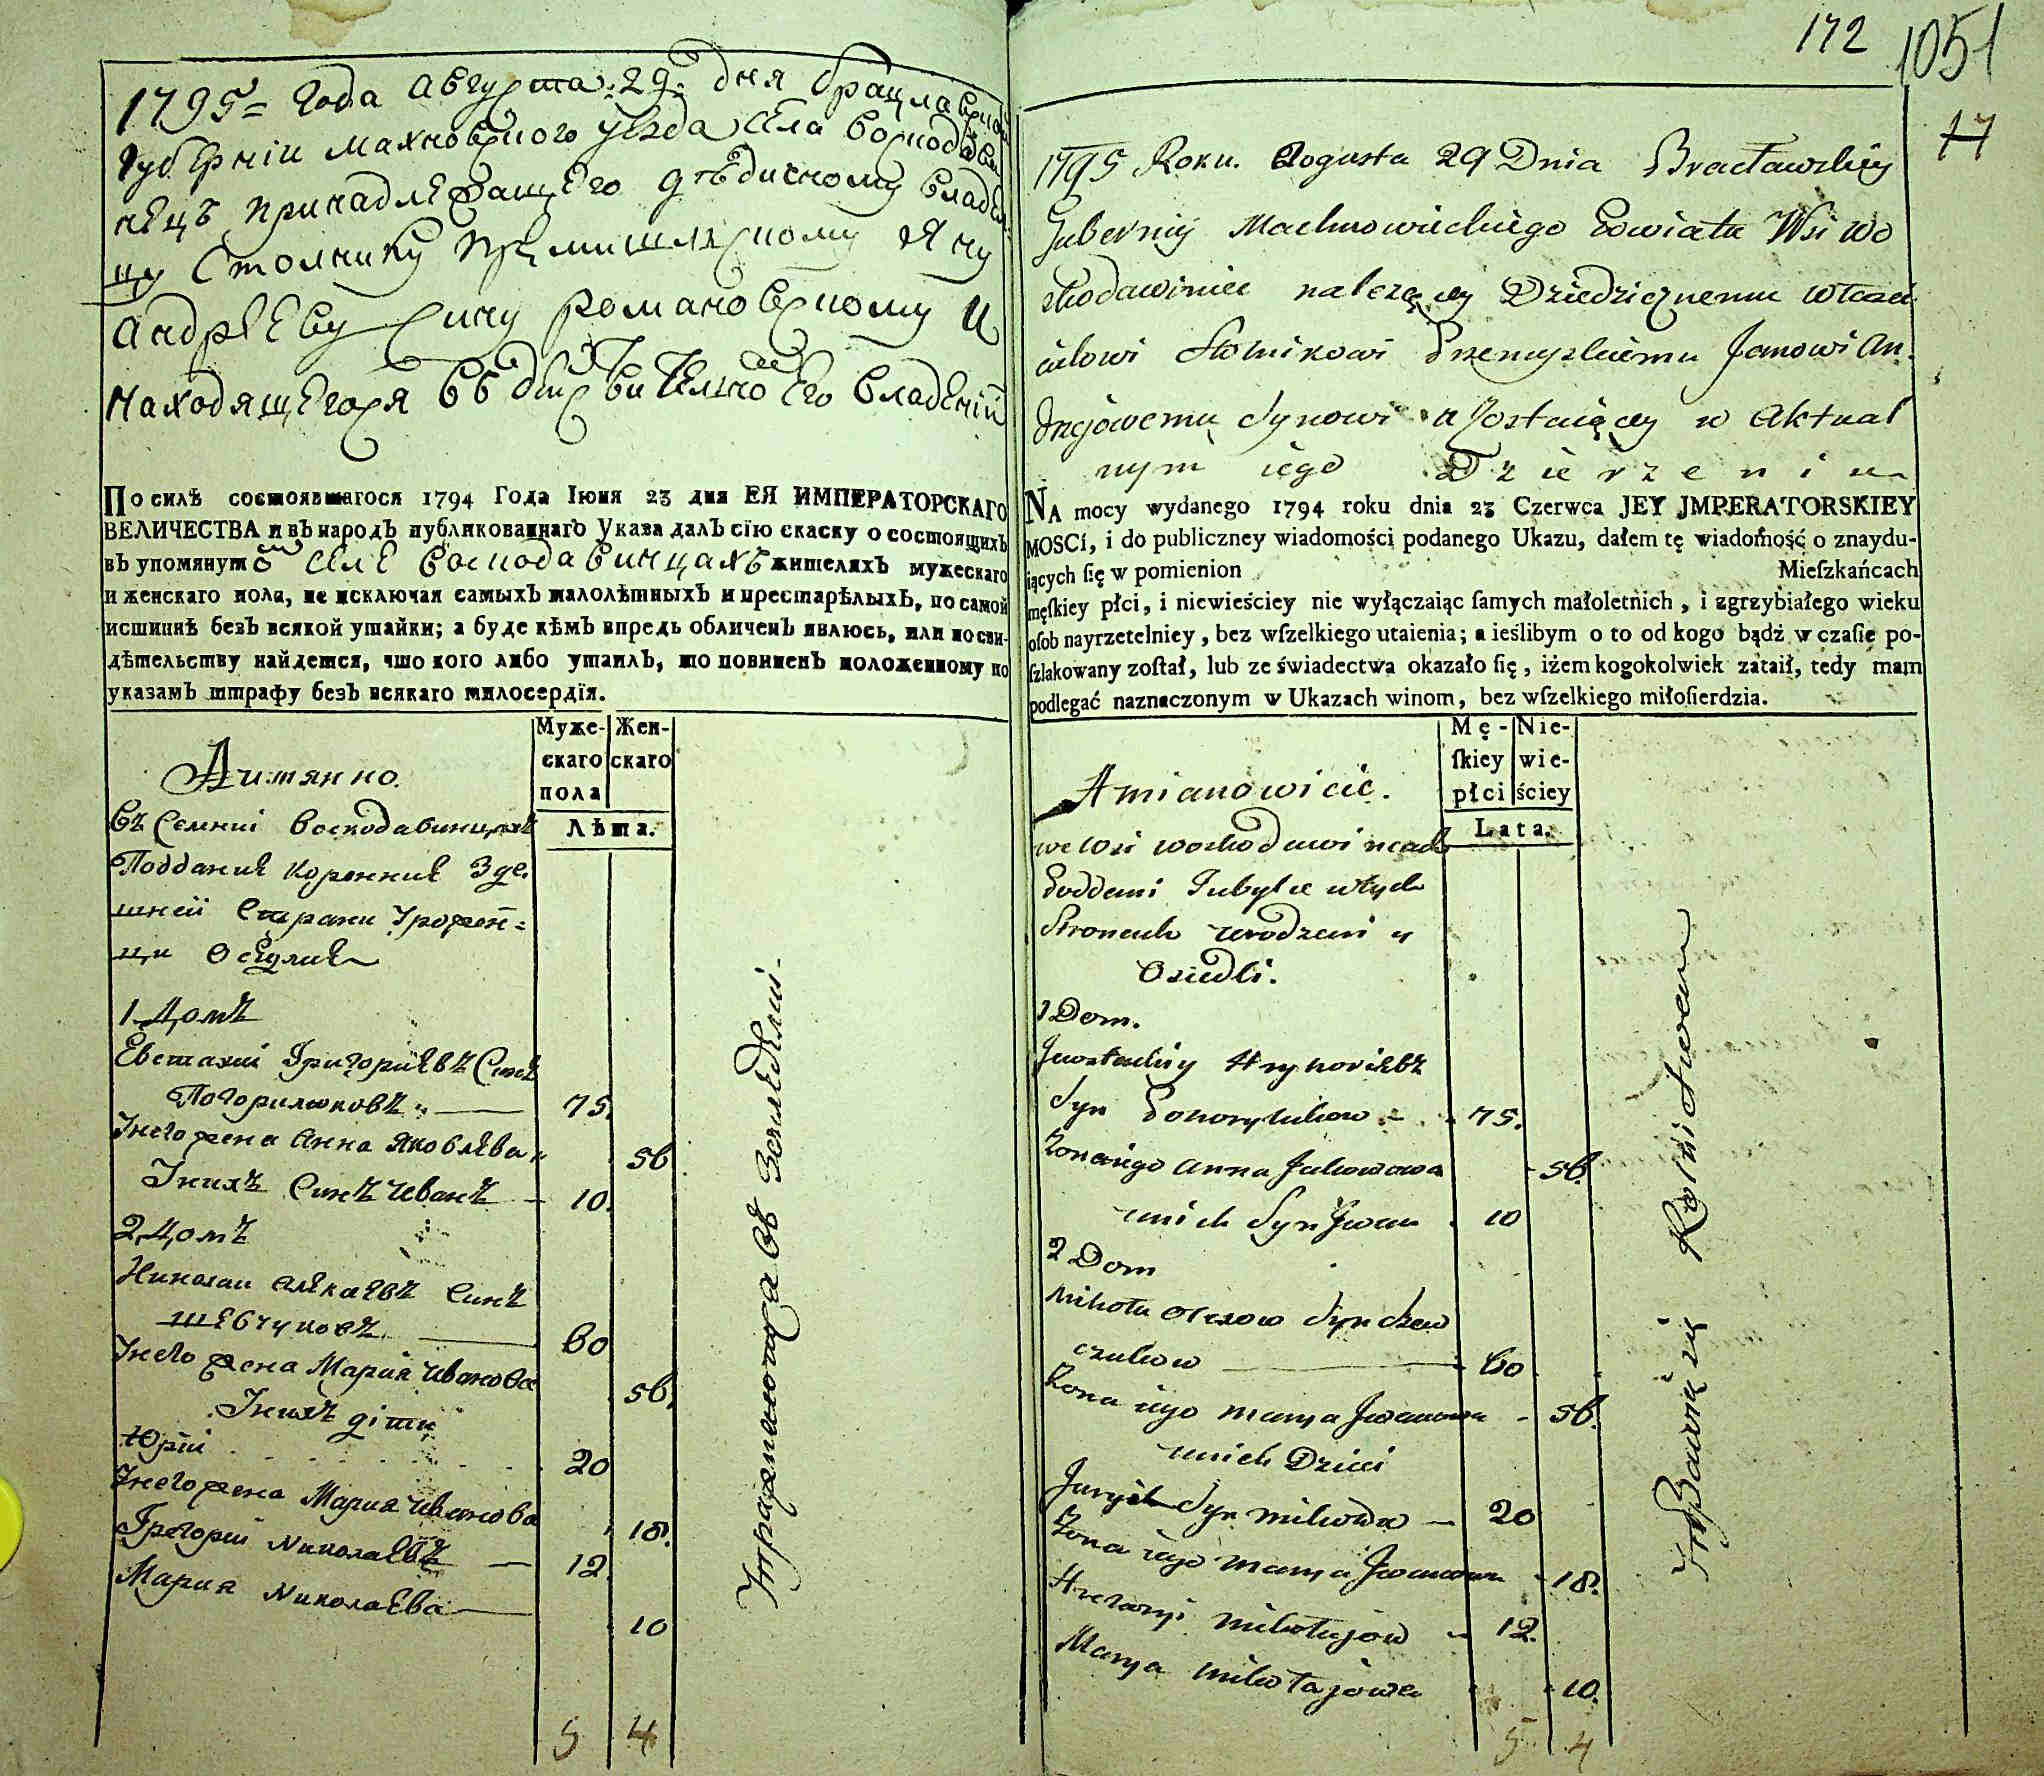 1795 = Года Августа : 29 : дня Брацлавской
Губернїи Махновского уѣзда села Воскодави
нецъ принадлежащего дѣдичному владел
цу столнику пржемишлскому Яну
Андрѣеву сину Романовскому и
находящегося въ действительно его владений
По силѣ состоявшагося 1794 Года Iюня 23 дня ЕЯ ИМПЕРАТОРСКАГО
ВЕЛИЧЕСТВА и въ народъ публикованнаго Указа далъ сїю скаску о состоящихъ
въ упомянутомъ селе Воскодавинцахъ жителяхъ мужескаго
и женскаго пола, не исключая самыхъ малолѣтныхъ и престарѣлыхъ, по самой
истиннѣ безъ всякой утайки; а буде кѣмъ впредь обличенъ явлюсь, или по сви-
дѣтельству найдется, что кого либо утаилъ, то повиненъ положенному по
указамъ штрафу безъ всякаго милосердїя.
Муже-
скаго
пола
Жен-
скаго
Лѣта.
А имянно.
въ селении Воскодавинцахъ
Поддание коренние зде
шней страни урожен=
ци оседлие
1 Домъ
Евстахий Григориевъ Синъ
Погорилюковъ 75.
У него жена Анна Яковлева 56
У нихъ Синъ Иванъ 10.
2 Домъ
Николаи Алекаевъ Синъ
Шевчуковъ 60
У него жена Мария Иванова 56.
У нихъ діти
Юрїи 20
У него жена Мария Иванова 18.
Грегорїи Николаевъ 12.
Мария Николаева 10
5 4
172
1051
17
1795 Roku. Augusta 29 Dnia Bracławskiey
Gubernij Machnowieckiego Powiatu Wsi Wo
skodawiniec nalezącey Dziedzicznemu Właści
cielowi Stolnikowi Przemyslskiemu Janowi An.
drzejowemu Synowi a zostaiącey w Aktual
nym iego Dzierzeniu
NA mocy wydanego 1794 roku dnia 23 Czerwca JEY JMPERATORSKIEY
MOSCI, i do publiczney wiadomości podanego Ukazu, dałem tę wiadomość o znaydu-
iących ſię w pomienion Mieſzkańcach
męſkiey płci, i niewieściey nie wyłączaiąc ſamych małoletnich, i zgrzybiałego wieku
oſob nayrzetelniey, bez wſzelkiego utaienia; a ieślibym o to od kogo bądź w czaſie po-
ſzlakowany zoſtał, lub ze świadectwa okazało ſię, iżem kogokolwiek zataił, tedy mam
podlegać naznaczonym w Ukazach winom, bez wſzelkiego miłoſierdzia.
Mę-
ſkiey
płci
Nie-
wie-
ściey
Lata.
A mianowicie.
we Wsi Woskodawincach
Poddani Tubylce w tych
Stronach urodzeni y
Osiedli.
1 Dom.
Jewstachiy Hryhoriewъ
Syn Pohorylukow 75.
Zona iego Anna Jakowowa 56.
u nich Syn Jwan 10
2 Dom
Mikołu Olexow Syn Szew
czukow 60
Zona iego Marya Jwanowa 56.
u nich Dzieci
Juryi Syn Mikołow 20
Zona iego Marya Jwanowa 18.
Hrehoryi Mikołajow 12.
Marya Mikołajowa 10.
5 4